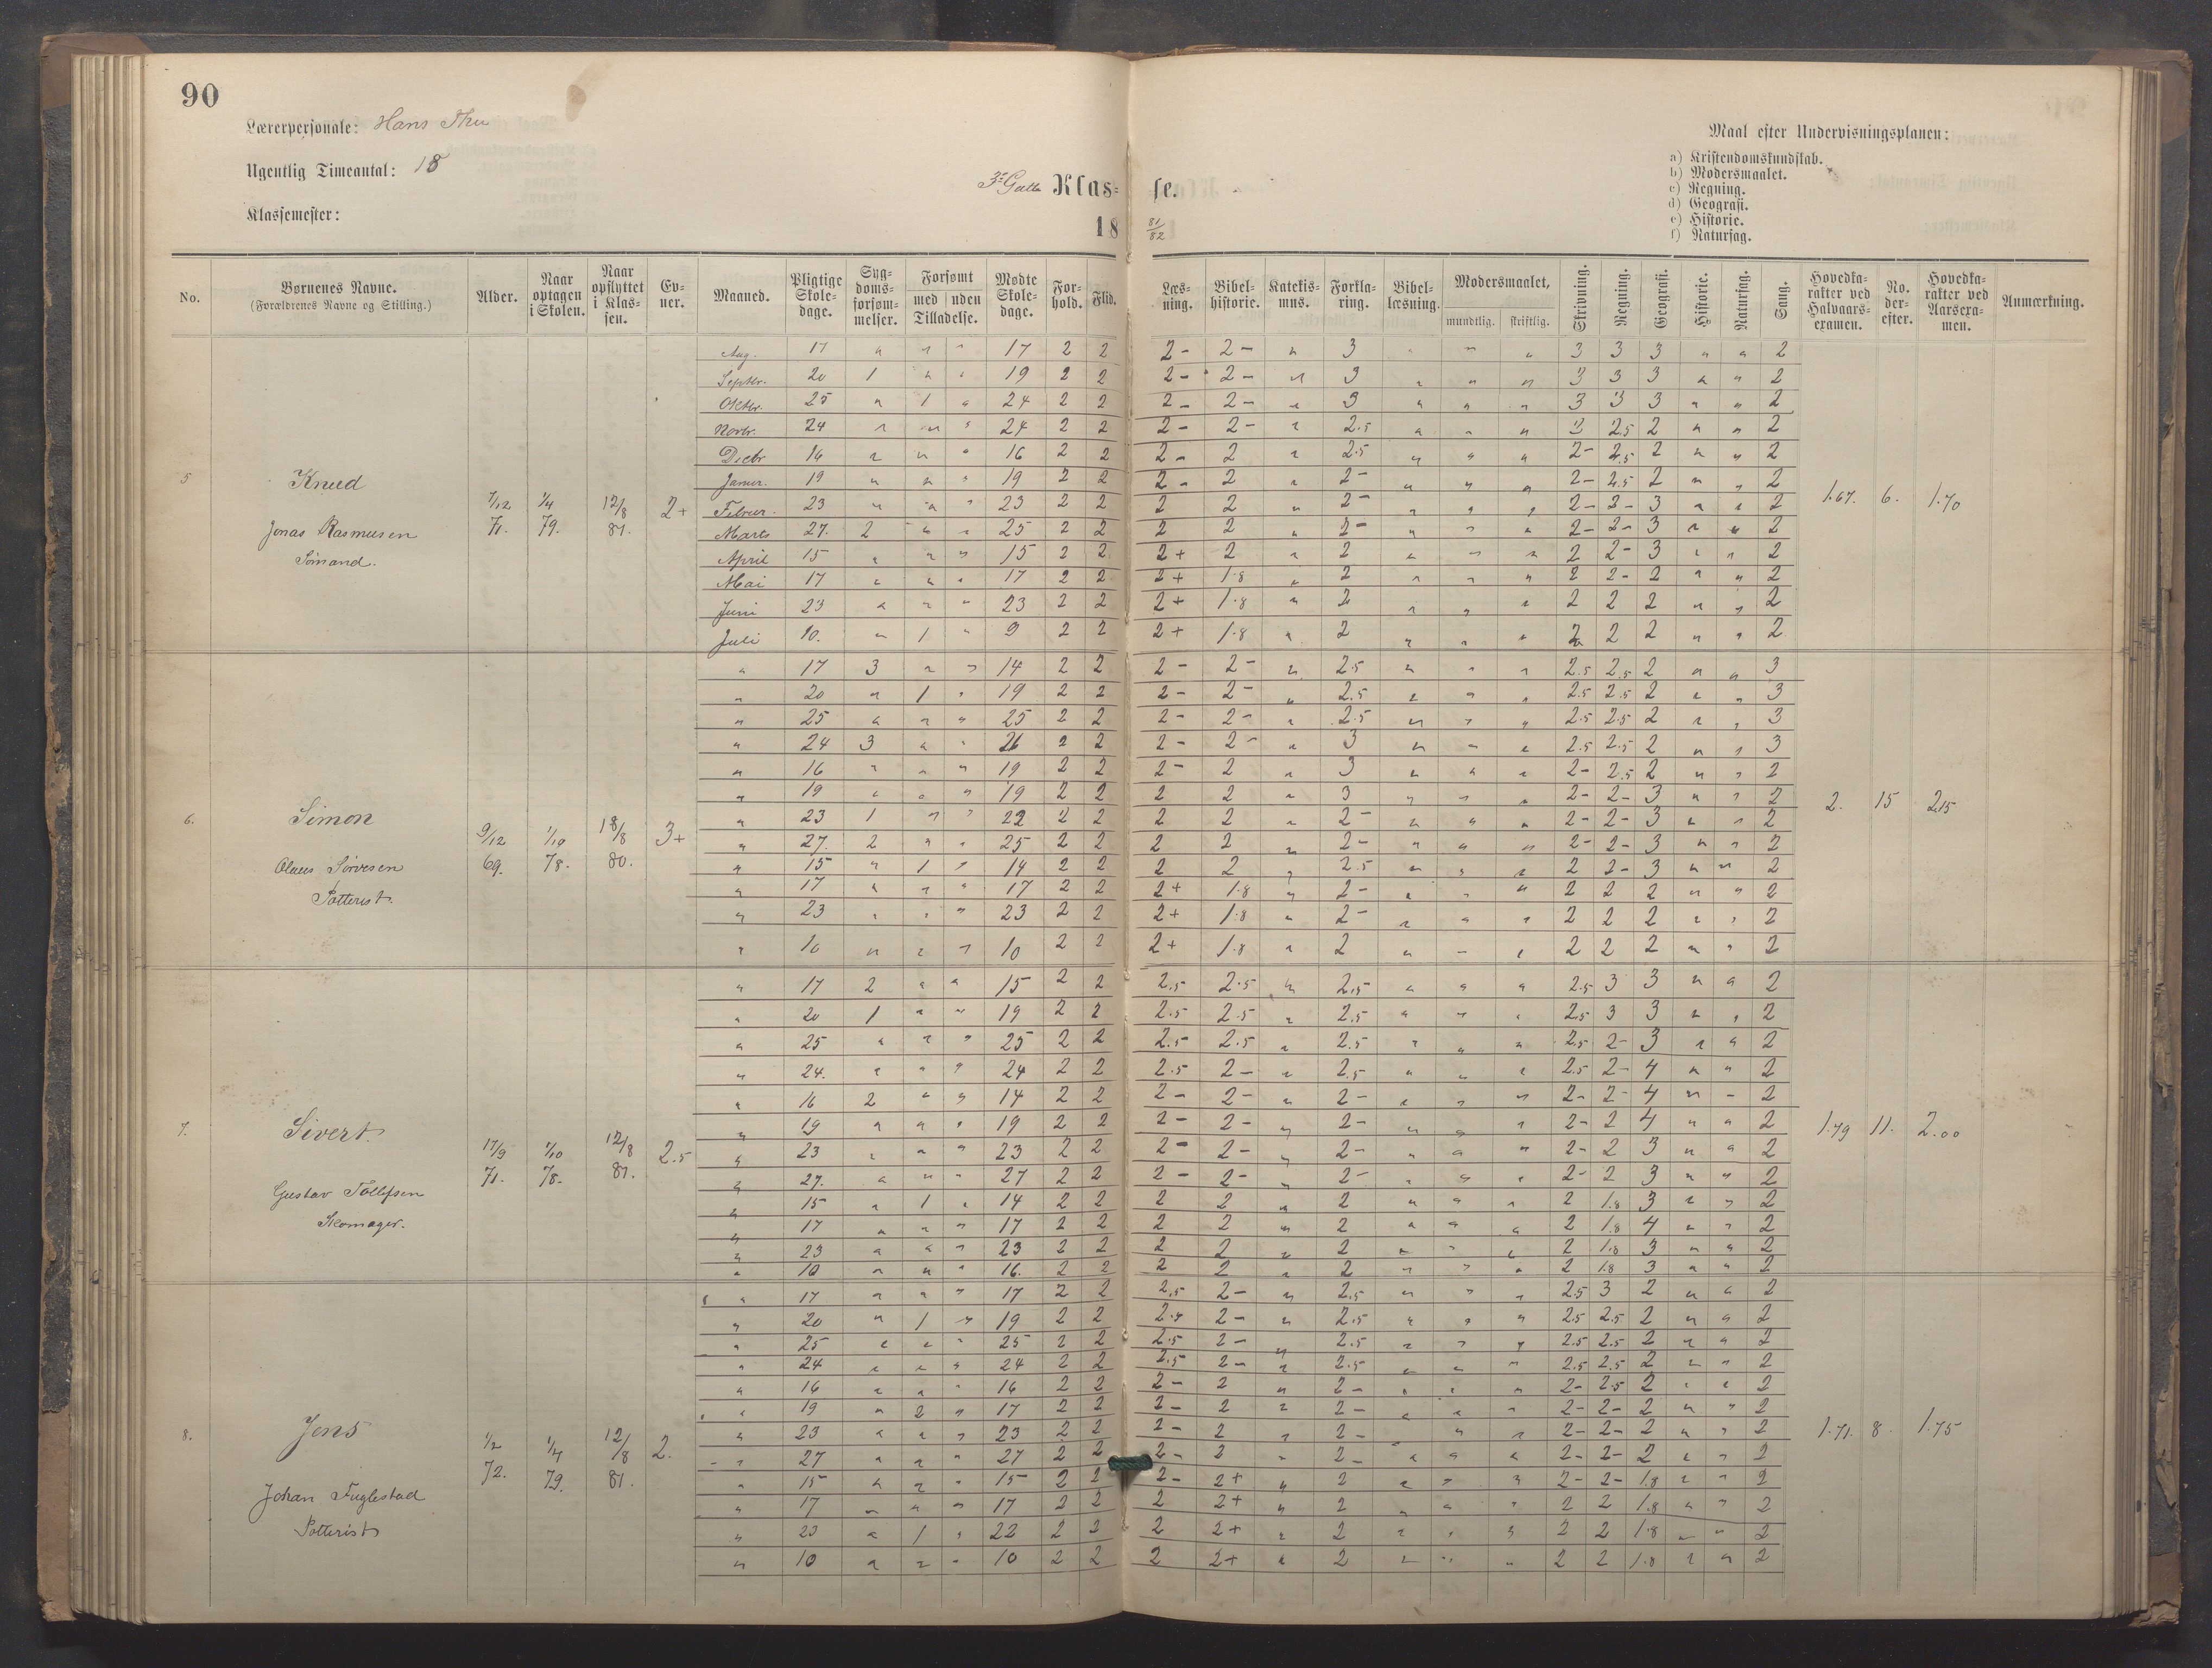 90
Lærerpersonale: Hans Thu
Ugentlig Timeantal: 18
Klassemester:
3die Gutte Klas-
se.
18
81/82
Maal efter Undervisningsplanen:
a) Kristendomskundskab.
b) Modersmaalet.
c) Regning.
d) Geografi.
e) Historie.
f) Naturfag.
No. Børnenes Navne. (Forældrenes Navne og Stilling.) Alder. Naar optagen i Skolen. Naar opflyttet i Klassen. Evner. Maaned. Pligtige Skoledage. Sygdomsforsømmelser. Forsømt med uden Tilladelse. Mødte Skoledage. Forhold. Flid. Læsning. Bibelhistorie. Katekismus. Forklaring. Bibellæsning. Modersmaalet, mundtlig. skriftlig. Skrivning. Regning. Geografi. Historie. Naturfag. Sang. Hovedkarakter ved Halvaarsexamen. No. derefter. Hovedkarakter ved Aarsexamen. Anmærkning.
Aug. 17 " " " 17 2 2 2- 2- " 3 " " " 3 3 3 " " 2
Septbr. 20 1 " " 19 2 2 2- 2- " 3 " " " 3 3 3 " " 2
Oktbr. 25 " 1 " 24 2 2 2- 2- " 3 " " " 3 3 3 " " 2
Novbr. 24 " " " 24 2 2 2- 2- " 2.5 " " " 3 2.5 2 " " 2
Decbr 16 " " " 16 2 2 2- 2 " 2.5 " " " 2- 2.5 2 " " 2
Januar. 19 " " " 19 2 2 2- 2 " 2- " " " 2- 2.5 2 " " 2
5 Knud 7/12 71. 1/4 79. 12/8 81. 2+ 1.67. 6. 1.70
Februar. 23 " " " 23 2 2 2 2 " 2- " " " 2- 2- 3 " " 2
Jonas Rasmusen
Marts 27. 2 " " 25 2 2 2 2 " 2- " " " 2- 2- 3 " " 2
Sømand.
April 15 " " " 15 2 2 2+ 2 " 2 " " " 2 2- 3 " " 2
Mai 17 " " " 17 2 2 2+ 1.8 " 2 " " " 2 2- 2 " " 2
Juni 23 " " " 23 2 2 2+ 1.8 " 2 " " " 2 2 2 " " 2
Juli 10. " 1 " 9 2 2 2+ 1.8 " 2 " " " 2 2 2 " " 2
" 17 3 " " 14 2 2 2- 2- " 2.5 " " " 2.5 2.5 2 " " 3
" 20 " 1 " 19 2 2 2- 2- " 2.5 " " " 2.5 2.5 2 " " 3
" 25 " " " 25 2 2 2- 2- " 2.5 " " " 2.5 2.5 2 " " 3
" 24 3 " " 21 2 2 2- 2- " 3 " " " 2.5 2.5 2 " " 3
" 16 " " " 19 2 2 2- 2 " 3 " " " 2- 2.5 2 " " 2
" 19 " " " 19 2 2 2 2 " 3 " " " 2- 2- 3 " " 2
6. Simon 9/12 69. 1/10 78. 18/8 80. 3+ 2. 15 2.15
" 23 1 " " 22 2 2 2 2 " 2- " " " 2- 2- 3 " " 2
" 27. 2 " " 25 2 2 2 2 " 2- " " " 2- 2- 3 " " 2
Olaus Sørvesen
" 15 " 1 " 14 2 2 2 2 " 2.5 " " " 2 2- 3 " " 2
Potterist.
" 17 " " " 17 2 2 2+ 1.8 " 2- " " " 2 2 2 " " 2
" 23 " " " 23 2 2 2+ 1.8 " 2- " " " 2 2 2 " " 2
" 10 " " " 10 2 2 2+ 1.8 " 2 " " " 2 2 2 " " 2
" 17 2 " " 15 2 2 2.5 2.5 " 2.5 " " " 2.5 3 3 " " 2
" 20 1 " " 19 2 2 2.5 2.5 " 2.5 " " " 2.5 3 3 " " 2
" 25 " " " 25 2 2 2.5 2.5 " 2.5 " " " 2.5 2- 3 " " 2
" 24. " " " 24 2 2 2.5 2- " 2.5 " " " 2.5 2- 4 " " 2
" 16 2 " " 14 2 2 2- 2- " 2- " " " 2- 2- 4 " " 2
" 19 " " " 19 2 2 2- 2- " 2- " " " 2- 2 4 " " 2
7. Sivert. 17/9 71. 1/10 78. 12/8 81. 2.5 1.79 11. 2.00
" 23 " " " 23 2 2 2- 2- " 2- " " " 2- 2 3 " " 2
" 27. " " " 27 2 2 2- 2- " 2- " " " 2- 2 3 " " 2
Gustav Tollefsen
" 15 " 1 " 14 2 2 2 2 " 2 " " " 2 1.8 3 " " 2
Skomager.
" 17 " " " 17 2 2 2 2 " 2 " " " 2 1.8 4 " " 2
" 23 " " " 23 2 2 2 2 " 2 " " " 2 1.8 3 " " 2
" 10 " " " 16. 2 2 2 2 " 2 " " " 2 1.8 3 " " 2
" 17 " " " 17 2 2 2.5 2- " 2.5 " " " 2.5 3 2 " " 2
" 20 " 1 " 19 2 2 2.5 2- " 2.5 " " " 2.5 2.5 2 " " 2
" 25 " " " 25 2 2 2.5 2- " 2.5 " " " 2.5 2.5 2 " " 2
" 24 " " " 24 2 2 2.5 2- " 2.5 " " " 2.5 2.5 2 " " 2
" 16 " " " 16 2 2 2- 2 " 2- " " " 2- 2.5 2 " " 2
" 19 " 2 " 17 2 2 2- 2 " 2- " " " 2- 2- 2 " " 2
8. Jens 1/2 72. 1/4 79. 12/8 81. 2. 1.71. 8. 1.75
" 23 " " " 23 2 2 2- 2 " 2- " " 2- 2- 2 " " 2
" 27 " " " 27 2 2 2- 2 " 2- " " " 2- 2- 2 " " 2
Johan Fuglestad
" 15 " " " 15 2 2 2- 2+ " 2 " " " 2- 2- 1.8 " " 2
" 17 " " " 17 2 2 2 2+ " 2 " " " 2 2 1.8 " " 2
Potterist
" 23 " 1 " 22 2 2 2 2+ " 2 " " " 2 2 1.8 " " 2
" 10 " " " 10 2 2 2 2+ " 2 " " " 2 2 1.8 " " 2